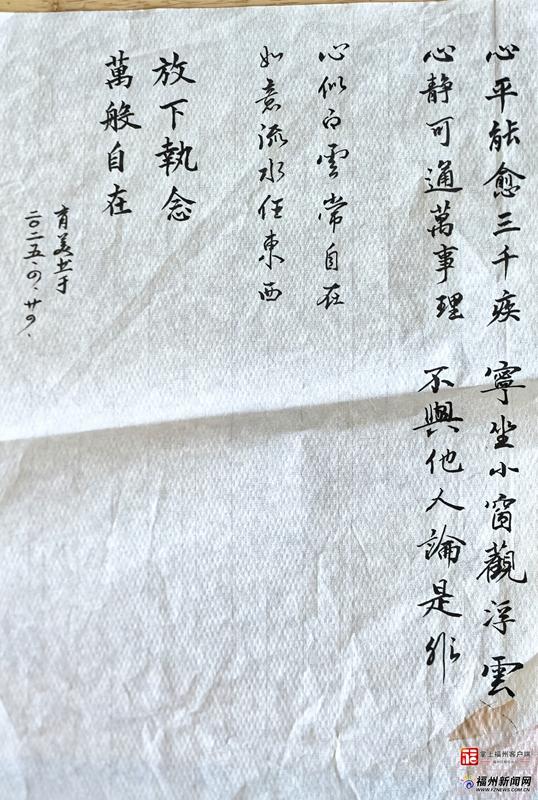 心平能愈三千疾 寧坐小窗觀浮雲
心靜可通萬事理 不與他人論是非
心似白雲常自在
如意流水任東西
放下執念
萬般自在
育美书于
二〇二五、四、廿四、
掌上福州客户端
福州新闻网
WWW.FZNEWS.COM.CN